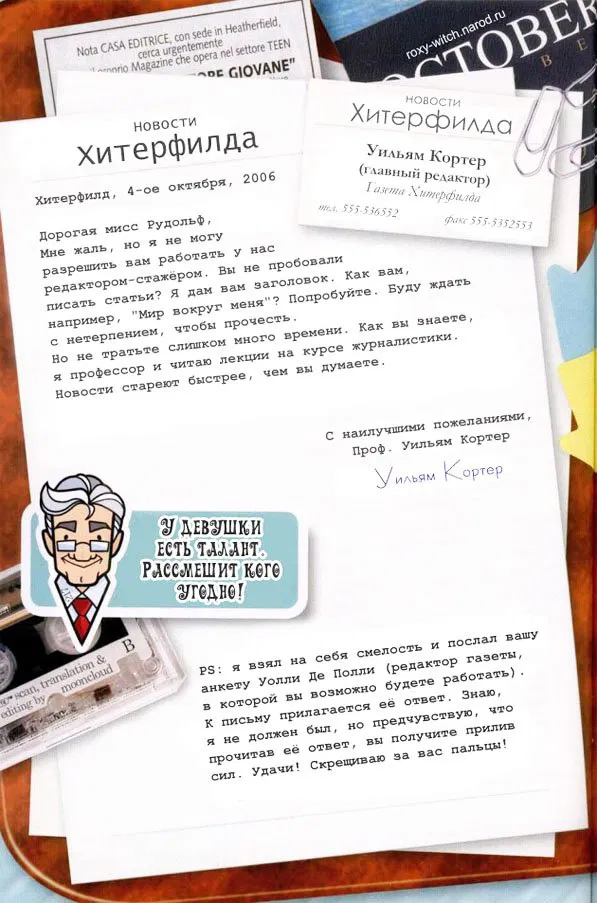 Nota CASA EDITRICE, con sede in Heatherfield,
cerca urgentemente
proprio Magazine che opera nel settore TEEN
ORE GIOVANE"
roxy-witch.narod.ru
OCTOBER
НОВОСТИ
Хитерфилда
Уильям Кортер
(главный редактор)
Газета Хитерфилда
тел. 555-536552
факс 555-5352553
НОВОСТИ
Хитерфилда
Хитерфилд, 4-ое октября, 2006
Дорогая мисс Рудольф,
Мне жаль, но я не могу
разрешить вам работать у нас
редактором-стажёром. Вы не пробовали
писать статьи? Я дам вам заголовок. Как вам,
например, "Мир вокруг меня"? Попробуйте. Буду ждать
с нетерпением, чтобы прочесть.
Но не тратьте слишком много времени. Как вы знаете,
я профессор и читаю лекции на курсе журналистики.
Новости стареют быстрее, чем вы думаете.
С наилучшими пожеланиями,
Проф. Уильям Кортер
Уильям Кортер
У ДЕВУШКИ
ЕСТЬ ТАЛАНТ.
РАССМЕШИТ КОГО
УГОДНО!
scan, translation &
editing by mooncloud
B
PS: я взял на себя смелость и послал вашу
анкету Уолли Де Полли (редактор газеты,
в которой вы возможно будете работать).
К письму прилагается её ответ. Знаю,
я не должен был, но предчувствую, что
прочитав её ответ, вы получите прилив
сил. Удачи! Скрещиваю за вас пальцы!